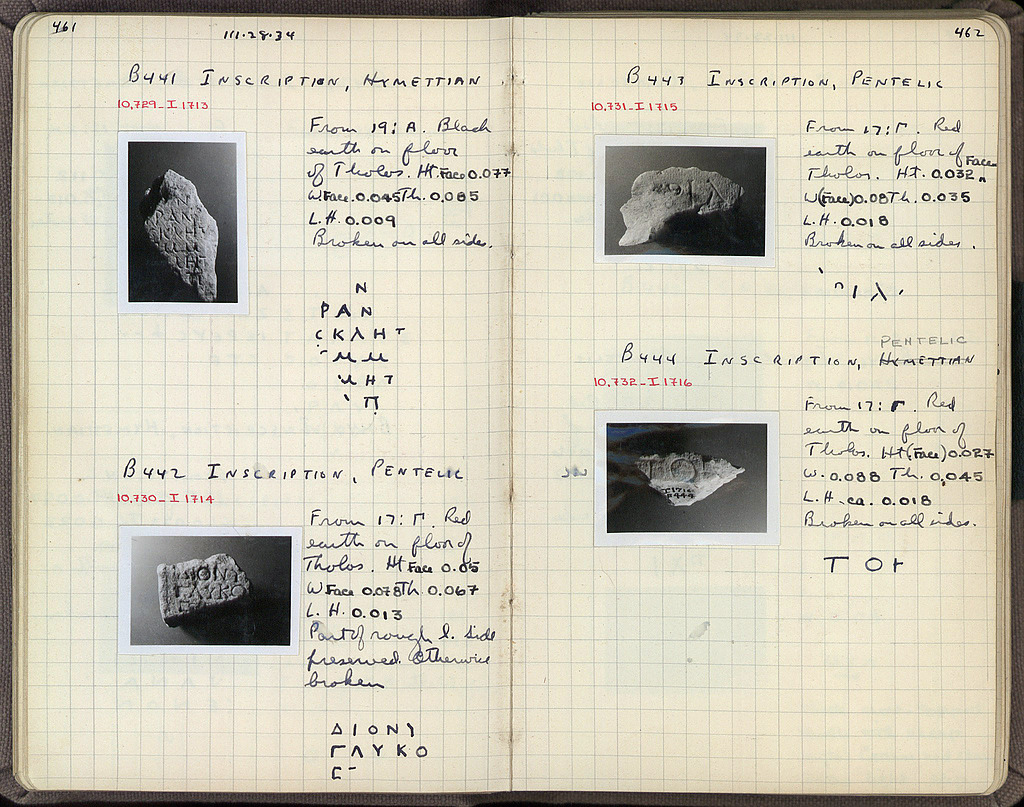 461
111·28·34
B441 INSCRIPTION, HYMETTIAN
10,729_I 1713
From 19:A. Black
earth on floor
of Tholos. Ht. Face 0.077
W.Face.0.045 Th. 0.085
L.H. 0.009
Broken on all sides.
Ν
ΡΑΝ
ϹΚΛΗΤ
ΗΤ
Π
B442 INSCRIPTION, PENTELIC
10,730_I 1714
From 17:Γ. Red
earth on floor of
Tholos. Ht Face 0.05
W.Face 0.078 Th. 0.067
L.H. 0.013
Part of rough l. side
preserved. Otherwise
broken
ΔΙΟΝΥ
ΓΛΥΚΟ
Ε
462
B443 INSCRIPTION, PENTELIC
10,731_I 1715
From 17:Γ. Red
earth on floor of
Tholos. Ht. Face 0.032
W(Face)0.08 Th. 0.035
L.H. 0.018
Broken on all sides.
PENTELIC
B444 INSCRIPTION, HYMETTIAN
10,732_I 1716
From 17:Γ. Red
earth on floor of
Tholos. Ht(Face)0.027
W. 0.088 Th. 0,045
L.H. ca. 0.018
Broken on all sides.
I 1716
B444
ΤΟΙ